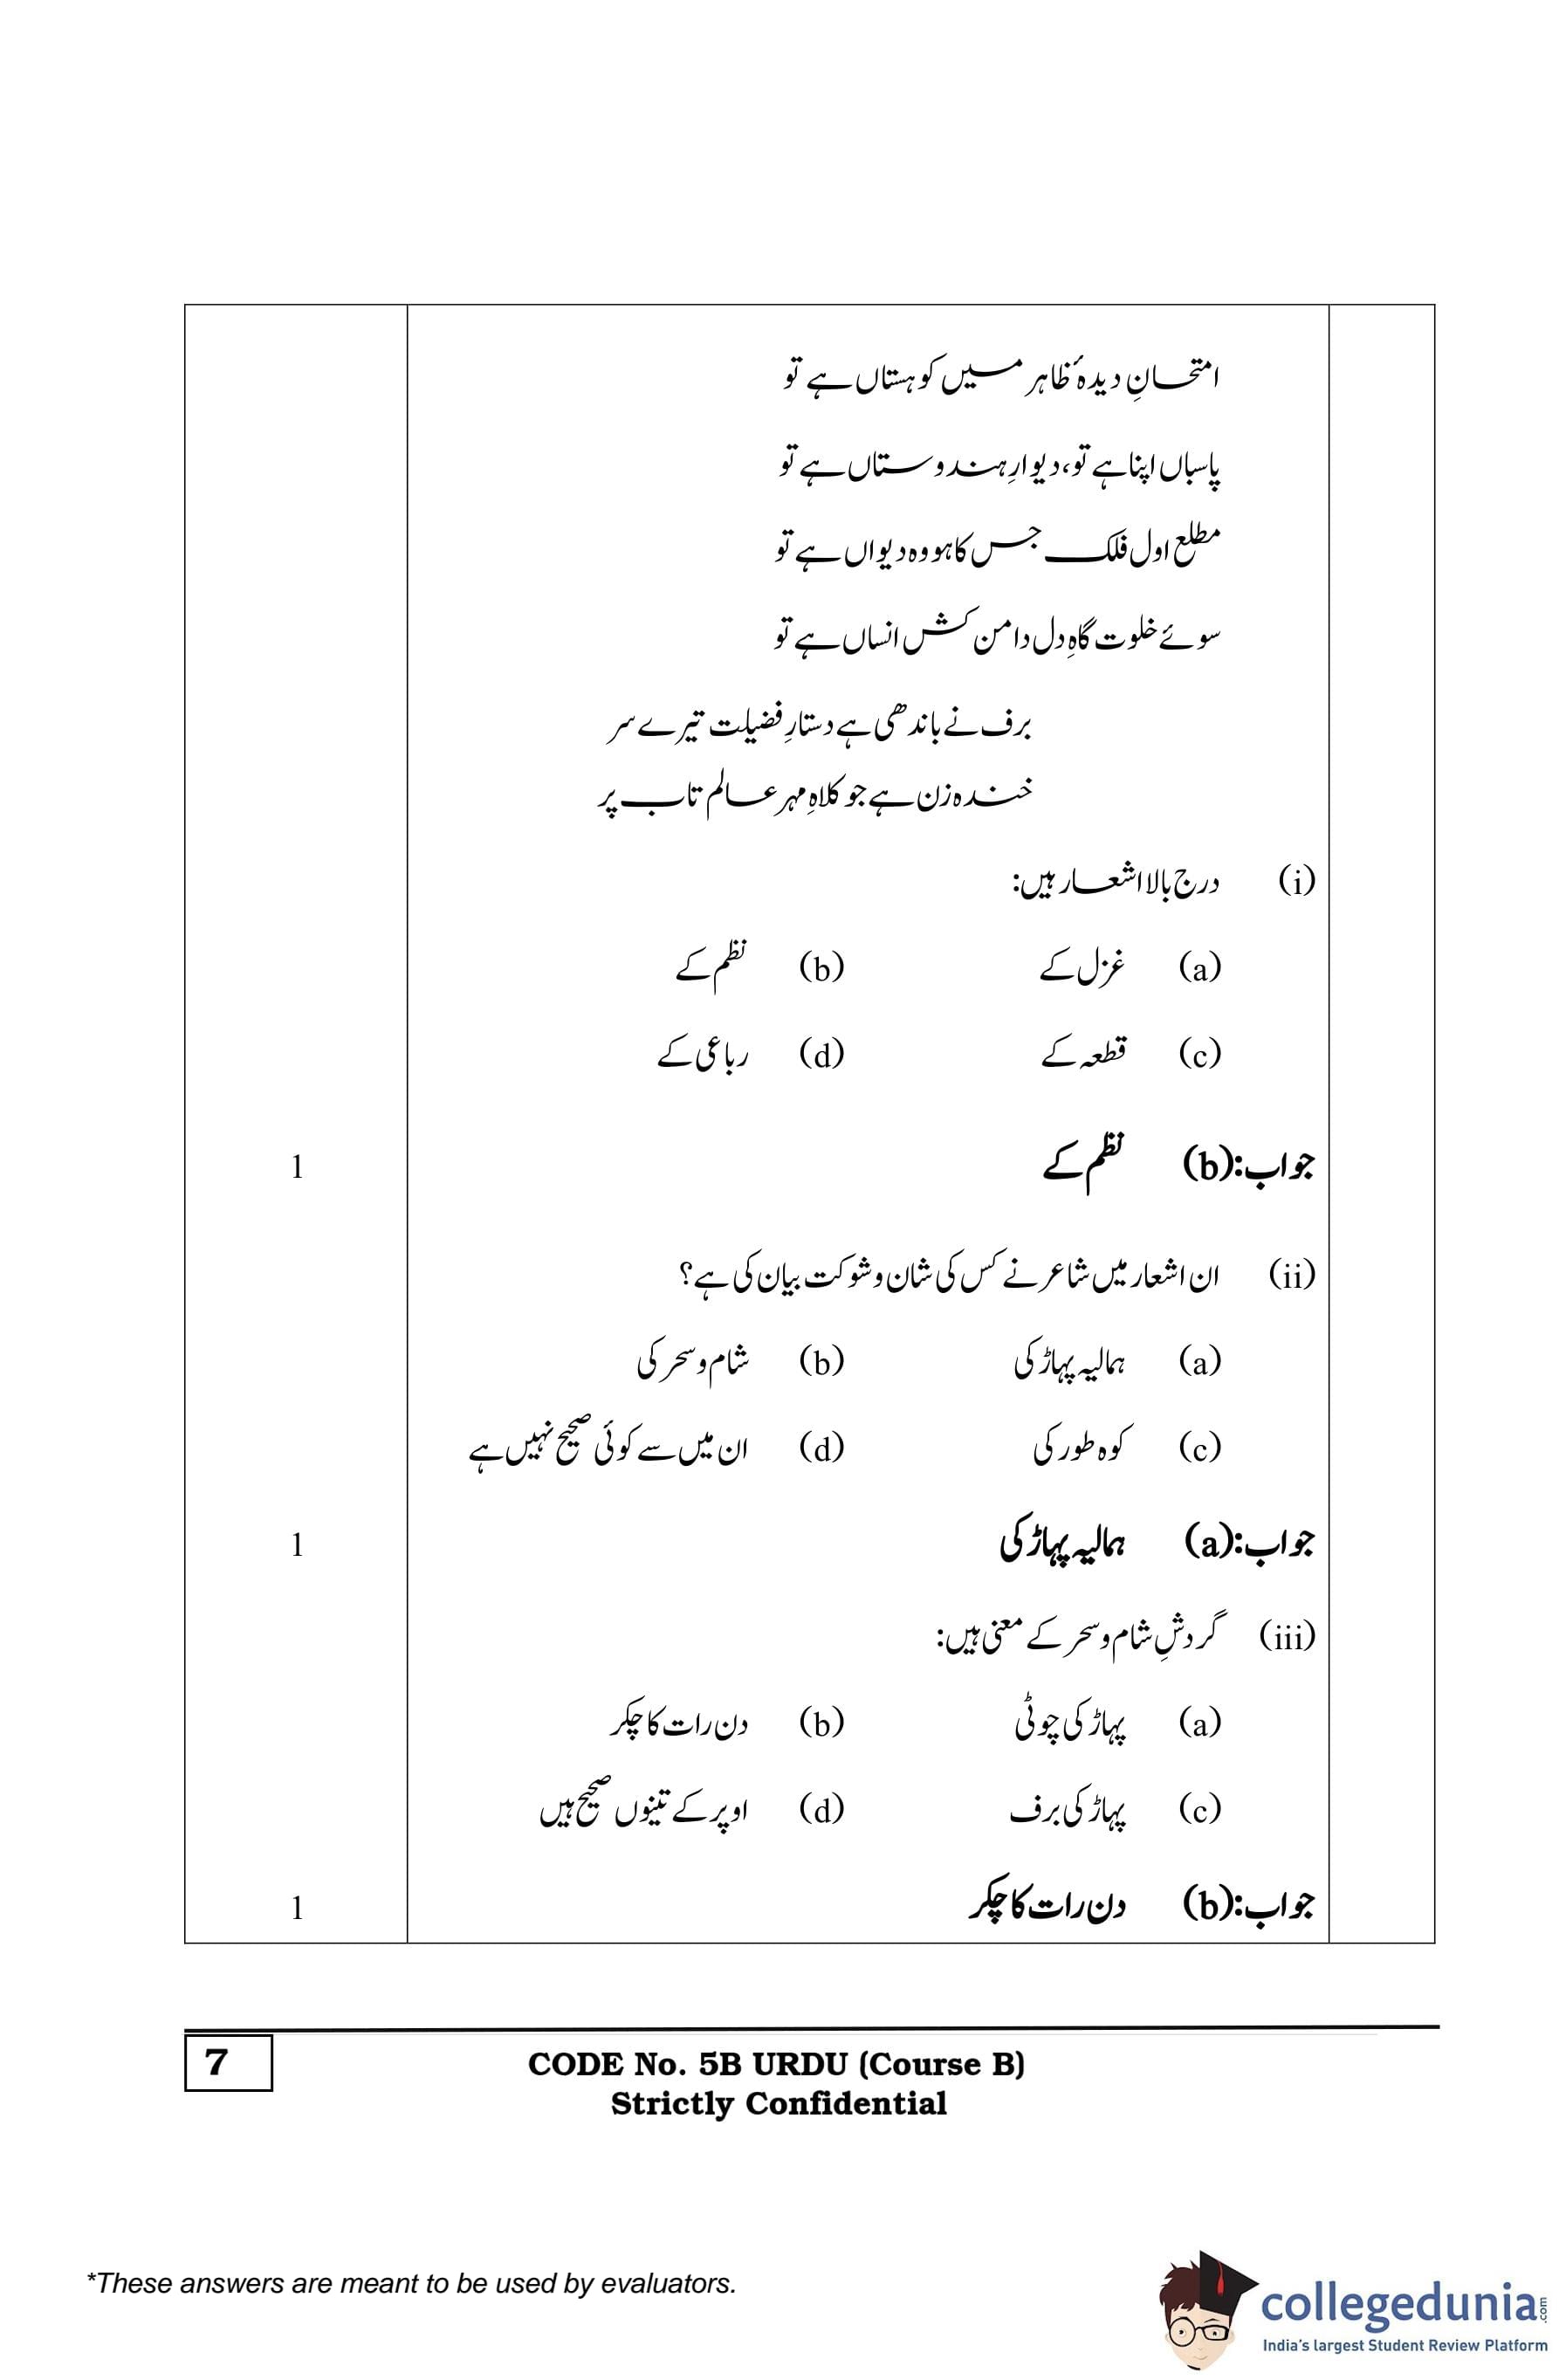 امتحانِ دیدۂ ظاہر میں کوہستاں ہے تو
پاسباں اپنا ہے تو، دیوارِ ہندوستاں ہے تو
مطلع اول فلک جس کا ہو وہ دیواں ہے تو
سوئے خلوت گاہِ دل دامن کش انساں ہے تو
برف نے باندھی ہے دستارِ فضیلت تیرے سر
خندہ زن ہے جو کلاہِ مہر عالم تاب پر
(i) درج بالا اشعار ہیں:
(a) غزل کے (b) نظم کے
(c) قطعہ کے (d) رباعی کے
جواب:(b) نظم کے 1
(ii) ان اشعار میں شاعر نے کس کی شان و شوکت بیان کی ہے؟
(a) ہمالیہ پہاڑ کی (b) شام و سحر کی
(c) کوہ طور کی (d) ان میں سے کوئی صحیح نہیں ہے
جواب:(a) ہمالیہ پہاڑ کی 1
(iii) گردشِ شام و سحر کے معنی ہیں:
(a) پہاڑ کی چوٹی (b) دن رات کا چکر
(c) پہاڑ کی برف (d) اوپر کے تینوں صحیح ہیں
جواب:(b) دن رات کا چکر 1
7 CODE No. 5B URDU (Course B)
Strictly Confidential
*These answers are meant to be used by evaluators.
collegedunia.com
India's largest Student Review Platform